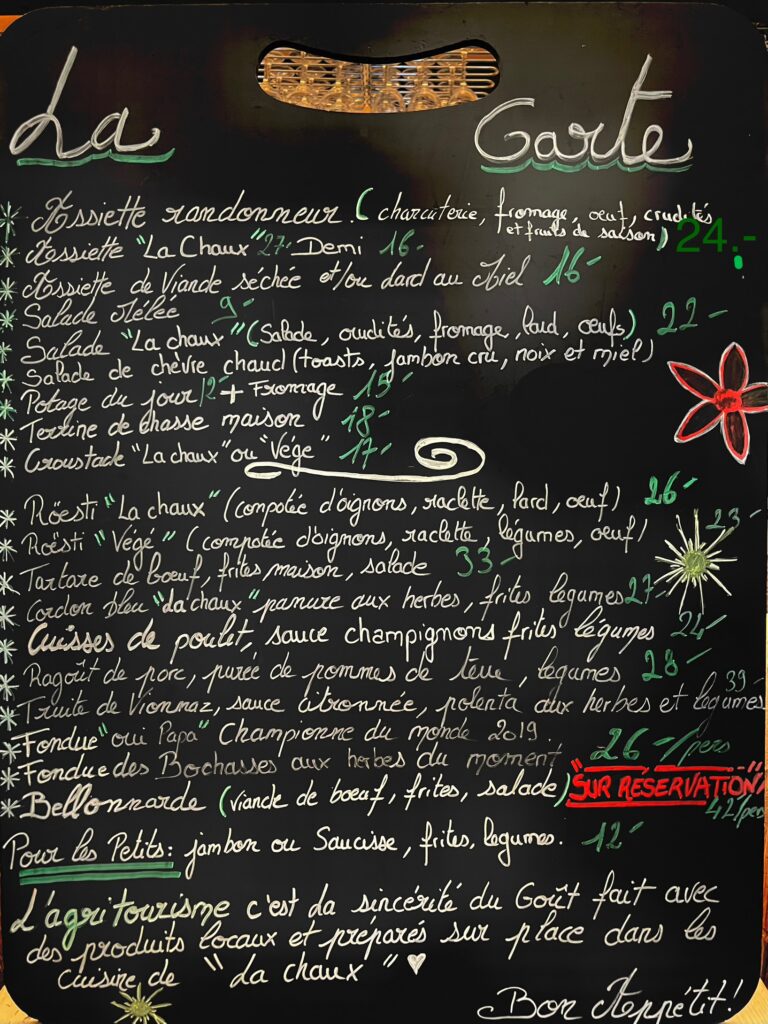 La Carte
Assiette randonneur. (charcuterie, fromage, oeuf, crudités
et fruits de saison) 24.-
Assiette "La Chaux" 27- Demi 16-
Assiette de Viande séchée et/ou lard au Miel 16-
Salade Mêlée 9-
Salade "La chaux" (Salade, crudités, fromage, lard, oeufs) 22-
Salade de chèvre chaud (toasts, jambon cru, noix et miel)
Potage du jour 12- + Fromage 15-
Terrine de chasse maison 18-
Croustade "La chaux" ou "Vége" 17-
Röesti "La chaux" (compotée d'oignons, raclette, lard, oeuf) 26-
Roësti "Végé" (compotée d'oignons, raclette, légumes, oeuf) 23-
Tartare de boeuf, frites maison, salade 33-
Cordon bleu "La chaux" panure aux herbes, frites legumes 27-
Cuisses de poulet, sauce champignons frites légumes 24-
Ragoût de porc, purée de pommes de terre, legumes 28-
Truite de Vionnaz, sauce citronnée, polenta aux herbes et legumes 39-
Fondue "oui Papa" Championne du monde 2019.
Fondue des Bochasses aux herbes du moment 26-/pers
Bellonnarde (viande de boeuf, frites, salade) "SUR RESERVATION" 42/pers
Pour les Petits: jambon ou Saucisse, frites, legumes. 12-
L'agritourisme c'est la sincérité du Goût fait avec
des produits locaux et préparés sur place dans les
cuisine de "La chaux" ♥
Bon Appétit!